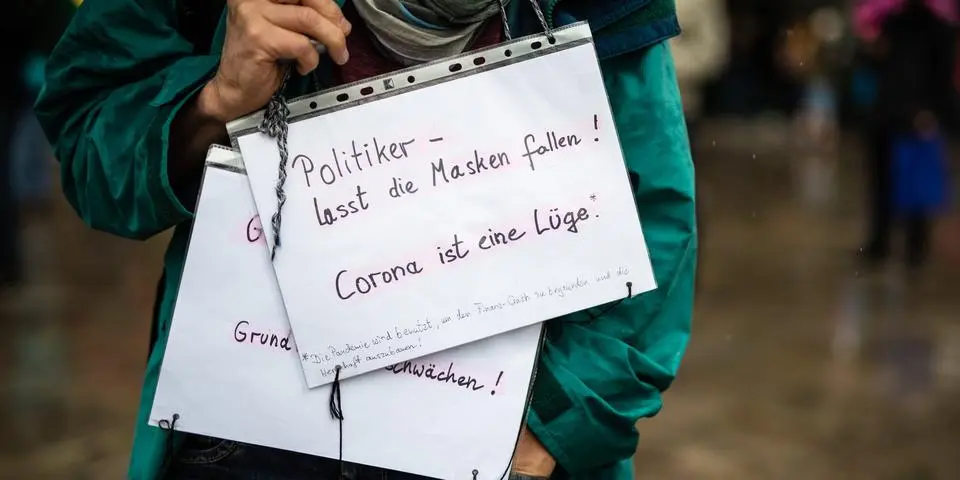 Politiker -
lasst die Masken fallen !
Corona ist eine Lüge*.
* Die Pandemie wird benutzt, um den Finanz-Crash zu begründen und die
Herrschaft auszubauen!
G
Grund
chwächen !